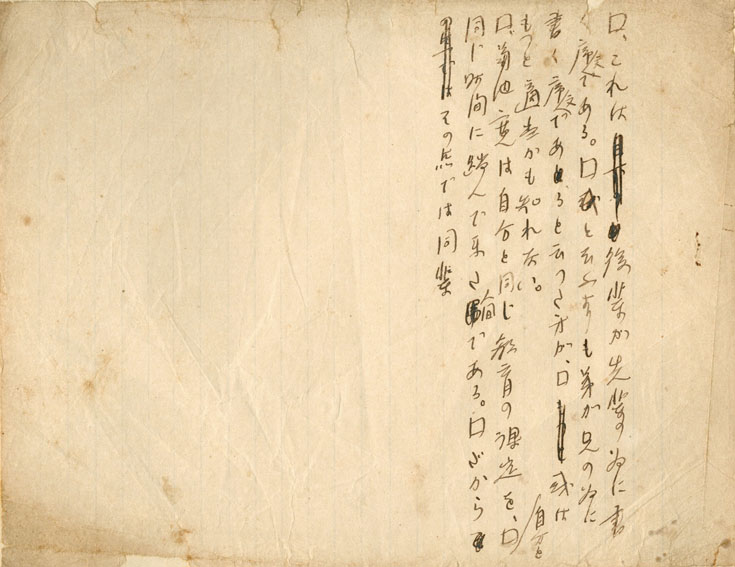 口、これは後輩が先輩の為に書
く序文である。口或と云ふよりも弟が兄の為に
書く序文であると云つた方が、口或は
もつと適当かも知れない。
口、菊池寛は自分と同じ教育の課定を、口自分と
同じ時間に踏んで来た人間である。口だから
その点では同輩